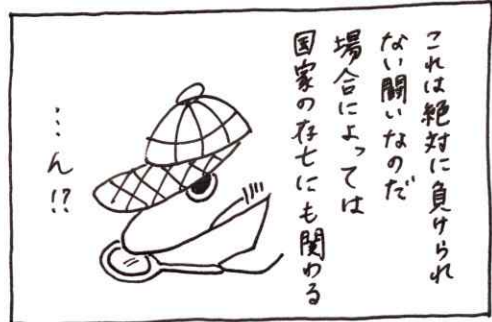 これは絶対に負けられ
ない闘いなのだ
場合によっては
国家の存亡にも関わる
…ん!?